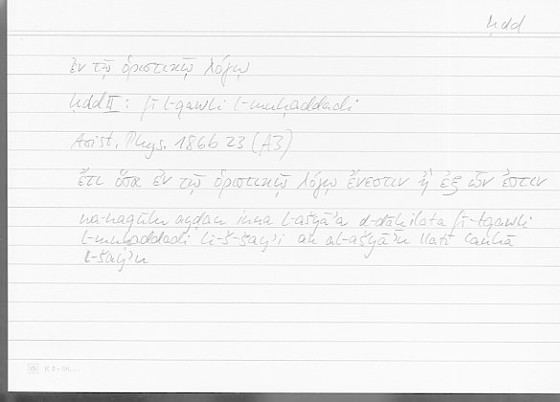 ḥdd
ἐν τῷ ὁριστικῷ λόγῳ
ḥdd II : fī l-qawli l-muḥaddadi
Arist. Phys. 186b 23 (A3)
ἔτι ὅσα ἐν τῷ ὁριστικῷ λόγῳ ἔνεστιν ἢ ἐξ ὧν ἐστιν
wa-naqūlu ayḍan inna l-ašyāʾa d-dāḫilata fī l-qawli
l-muḥaddadi li-š-šayʾi au al-ašyāʾu llatī ʿanhā
l-šayʾu